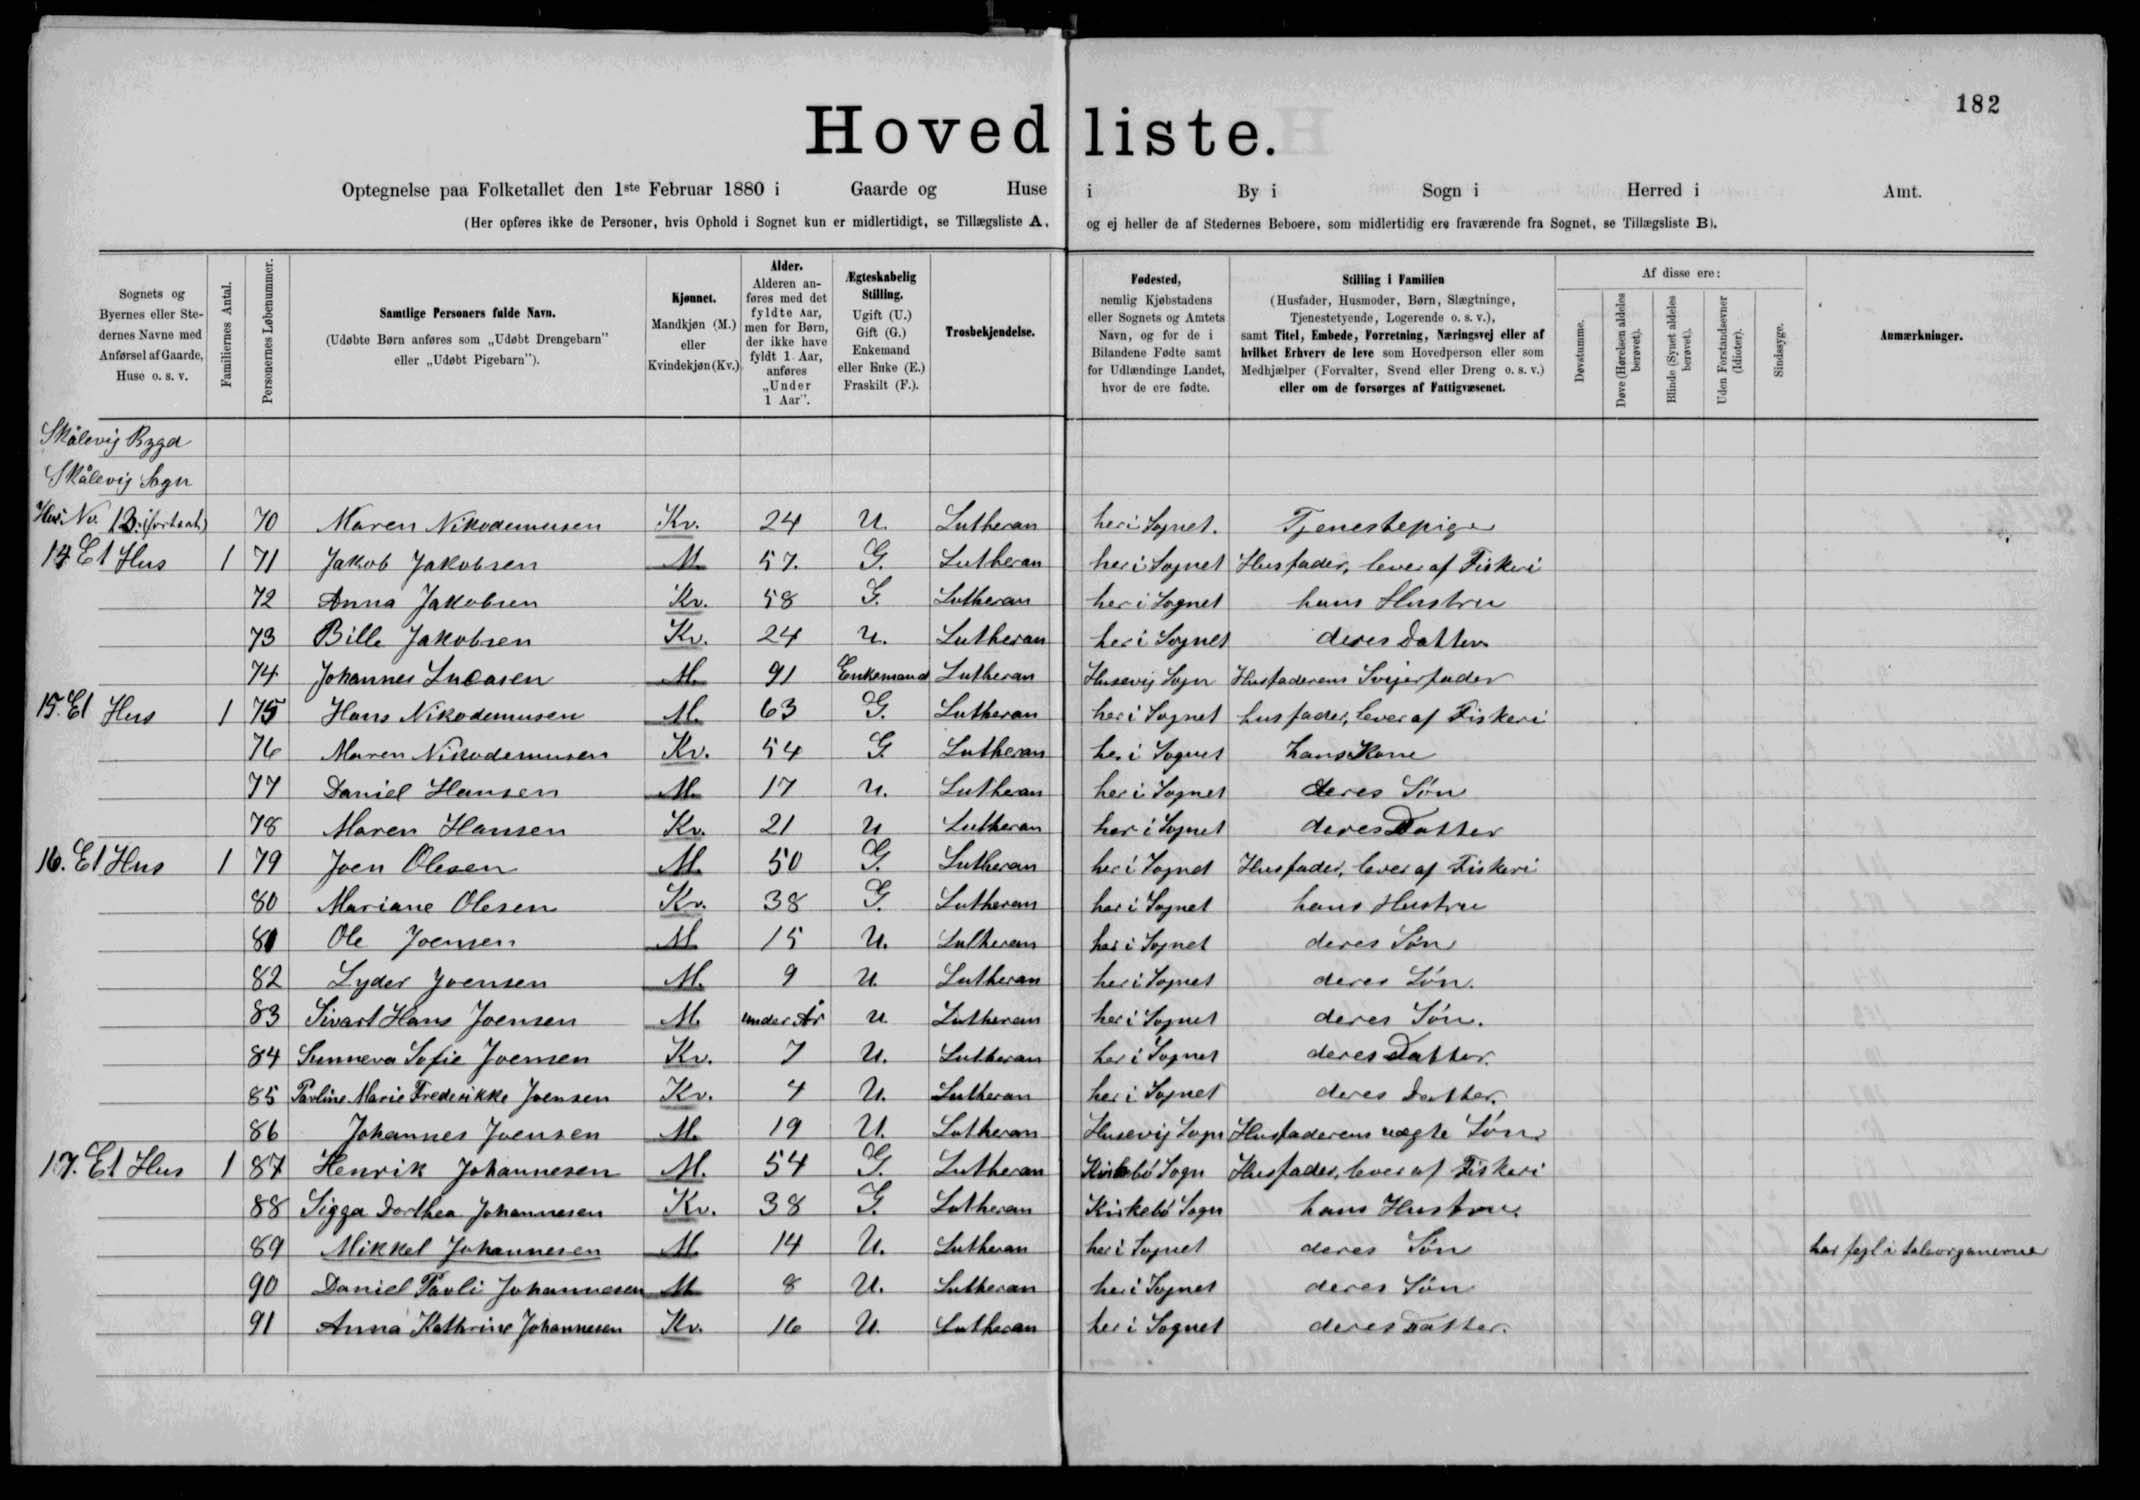 182
Hovedliste.
Optegnelse paa Folketallet den 1ste Februar 1880 i Gaarde og Huse i By i Sogn i Herred i Amt.
(Her opføres ikke de Personer, hvis Ophold i Sognet kun er midlertidigt, se Tillægsliste A. og ej heller de af Stedernes Beboere, som midlertidig ere fraværende fra Sognet, se Tillægsliste B).
Sognets og Byernes eller Stedernes Navne med Anførsel af Gaarde, Huse o. s. v.
Familiernes Antal.
Personernes Løbenummer.
Samtlige Personers fulde Navn.
(Udøbte Børn anføres som „Udøbt Drengebarn" eller „Udøbt Pigebarn").
Kjønnet.
Mandkjøn (M.) eller Kvindekjøn (Kv.)
Alder.
Alderen anføres med det fyldte Aar, men for Børn, der ikke have fyldt 1 Aar, anføres „Under 1 Aar".
Ægteskabelig Stilling.
Ugift (U.) Gift (G.) Enkemand eller Enke (E.) Fraskilt (F.).
Trosbekjendelse.
Fødested,
nemlig Kjøbstadens eller Sognets og Amtets Navn, og for de i Bilandene Fødte samt for Udlændinge Landet, hvor de ere fødte.
Stilling i Familien
(Husfader, Husmoder, Børn, Slægtninge, Tjenestetyende, Logerende o. s. v.),
samt Titel, Embede, Forretning, Næringsvej eller af hvilket Erhverv de leve som Hovedperson eller som Medhjælper (Forvalter, Svend eller Dreng o. s. v.) eller om de forsørges af Fattigvæsenet.
Af disse ere:
Døvstumme.
Døve (Hørelsen aldeles berøvet).
Blinde (Synet aldeles berøvet).
Uden Forstandsevner (Idioter).
Sindssyge.
Anmærkninger.
Skålevig Bygd
Skålevig Sogn
Hus No. 13. (fortsat) 70 Maren Nikodemusen Kv. 24 U. Lutheran her i Sognet. Tjenestepige
14 Et Hus 1 71 Jakob Jakobsen M. 57. G. Lutheran her i Sognet Husfader, lever af Fiskeri
72 Anna Jakobsen Kv. 58 G. Lutheran her i Sognet hans Hustru
73 Bille Jakobsen Kv. 24 U. Lutheran her i Sognet deres Datter
74 Johannes Lucasen M. 91 Enkemand Lutheran Husevig Sogn Husfaderens Svigerfader
15. Et Hus 1 75 Hans Nikodemusen M. 63 G. Lutheran her i Sognet husfader, lever af Fiskeri
76 Maren Nikodemusen Kv. 54 G Lutheran her i Sognet hans Kone
77 Daniel Hansen M. 17 U. Lutheran her i Sognet deres Søn
78 Maren Hansen Kv. 21 U Lutheran her i Sognet deres Datter
16. Et Hus 1 79 Joen Olesen M. 50 G. Lutheran her i Sognet Husfader, lever af Fiskeri
80 Mariane Olesen Kv. 38 G. Lutheran her i Sognet hans Hustru
81 Ole Joensen M 15 U. Lutheran her i Sognet deres Søn
82 Lyder Joensen M. 9 U. Lutheran her i Sognet deres Søn.
83 Sivart Hans Joensen M. under År U Lutheran her i Sognet deres Søn.
84 Sunneva Sofie Joensen Kv. 7 U. Lutheran her i Sognet deres Datter.
85 Pauline Marie Frederikke Joensen Kv. 4 U. Lutheran her i Sognet deres Datter.
86 Johannes Joensen M. 19 U. Lutheran Husevig Sogn Husfaderens uægte Søn
17. Et Hus 1 87 Henrik Johannesen M. 54 G. Lutheran Kirkebö Sogn Husfader, lever af Fiskeri
88 Sigga Dorthea Johannesen Kv. 38 G. Lutheran Kirkebö Sogn hans Hustru.
89 Mikkel Johannesen M 14 U. Lutheran her i Sognet deres Søn har fejl i taleorganerne
90 Daniel Pauli Johannesen M 8 U. Lutheran her i Sognet deres Søn
91 Anna Kathrine Johannesen Kv. 16 U. Lutheran her i Sognet deres Datter.